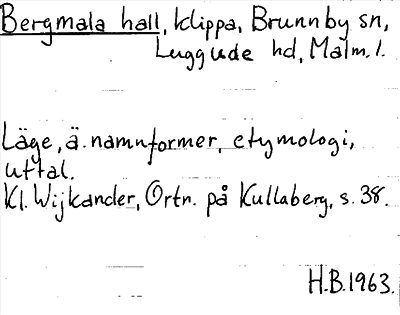 Bergmala hall, klippa, Brunnby sn,
Luggude hd, Malm.l.
Läge, ä. namnformer, etymologi,
uttal.
Kl. Wijkander, Ortn. på Kullaberg, s. 38.
H.B.1963.